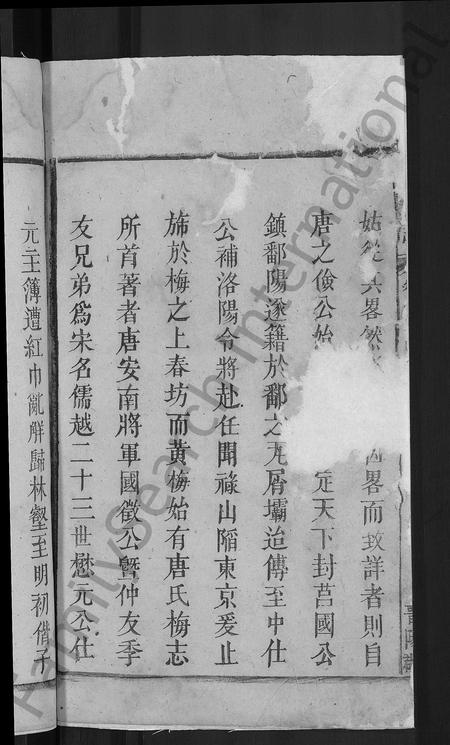 姑從其畧然
畧而致詳者則自
唐之儉公始
定天下封莒國公
鎮鄱陽遂籍於鄱之瓦屑壩迨傳至中仕
公補洛陽令將赴任聞祿山陷東京爰止
斾於梅之上春坊而黃梅始有唐氏梅志
所首著者唐安南將軍國徵公暨仲友季
友兄弟爲宋名儒越二十三世懋元公仕
元主簿遭紅巾亂觧歸林壑至明初偕子
晉陽
FamilySearch International